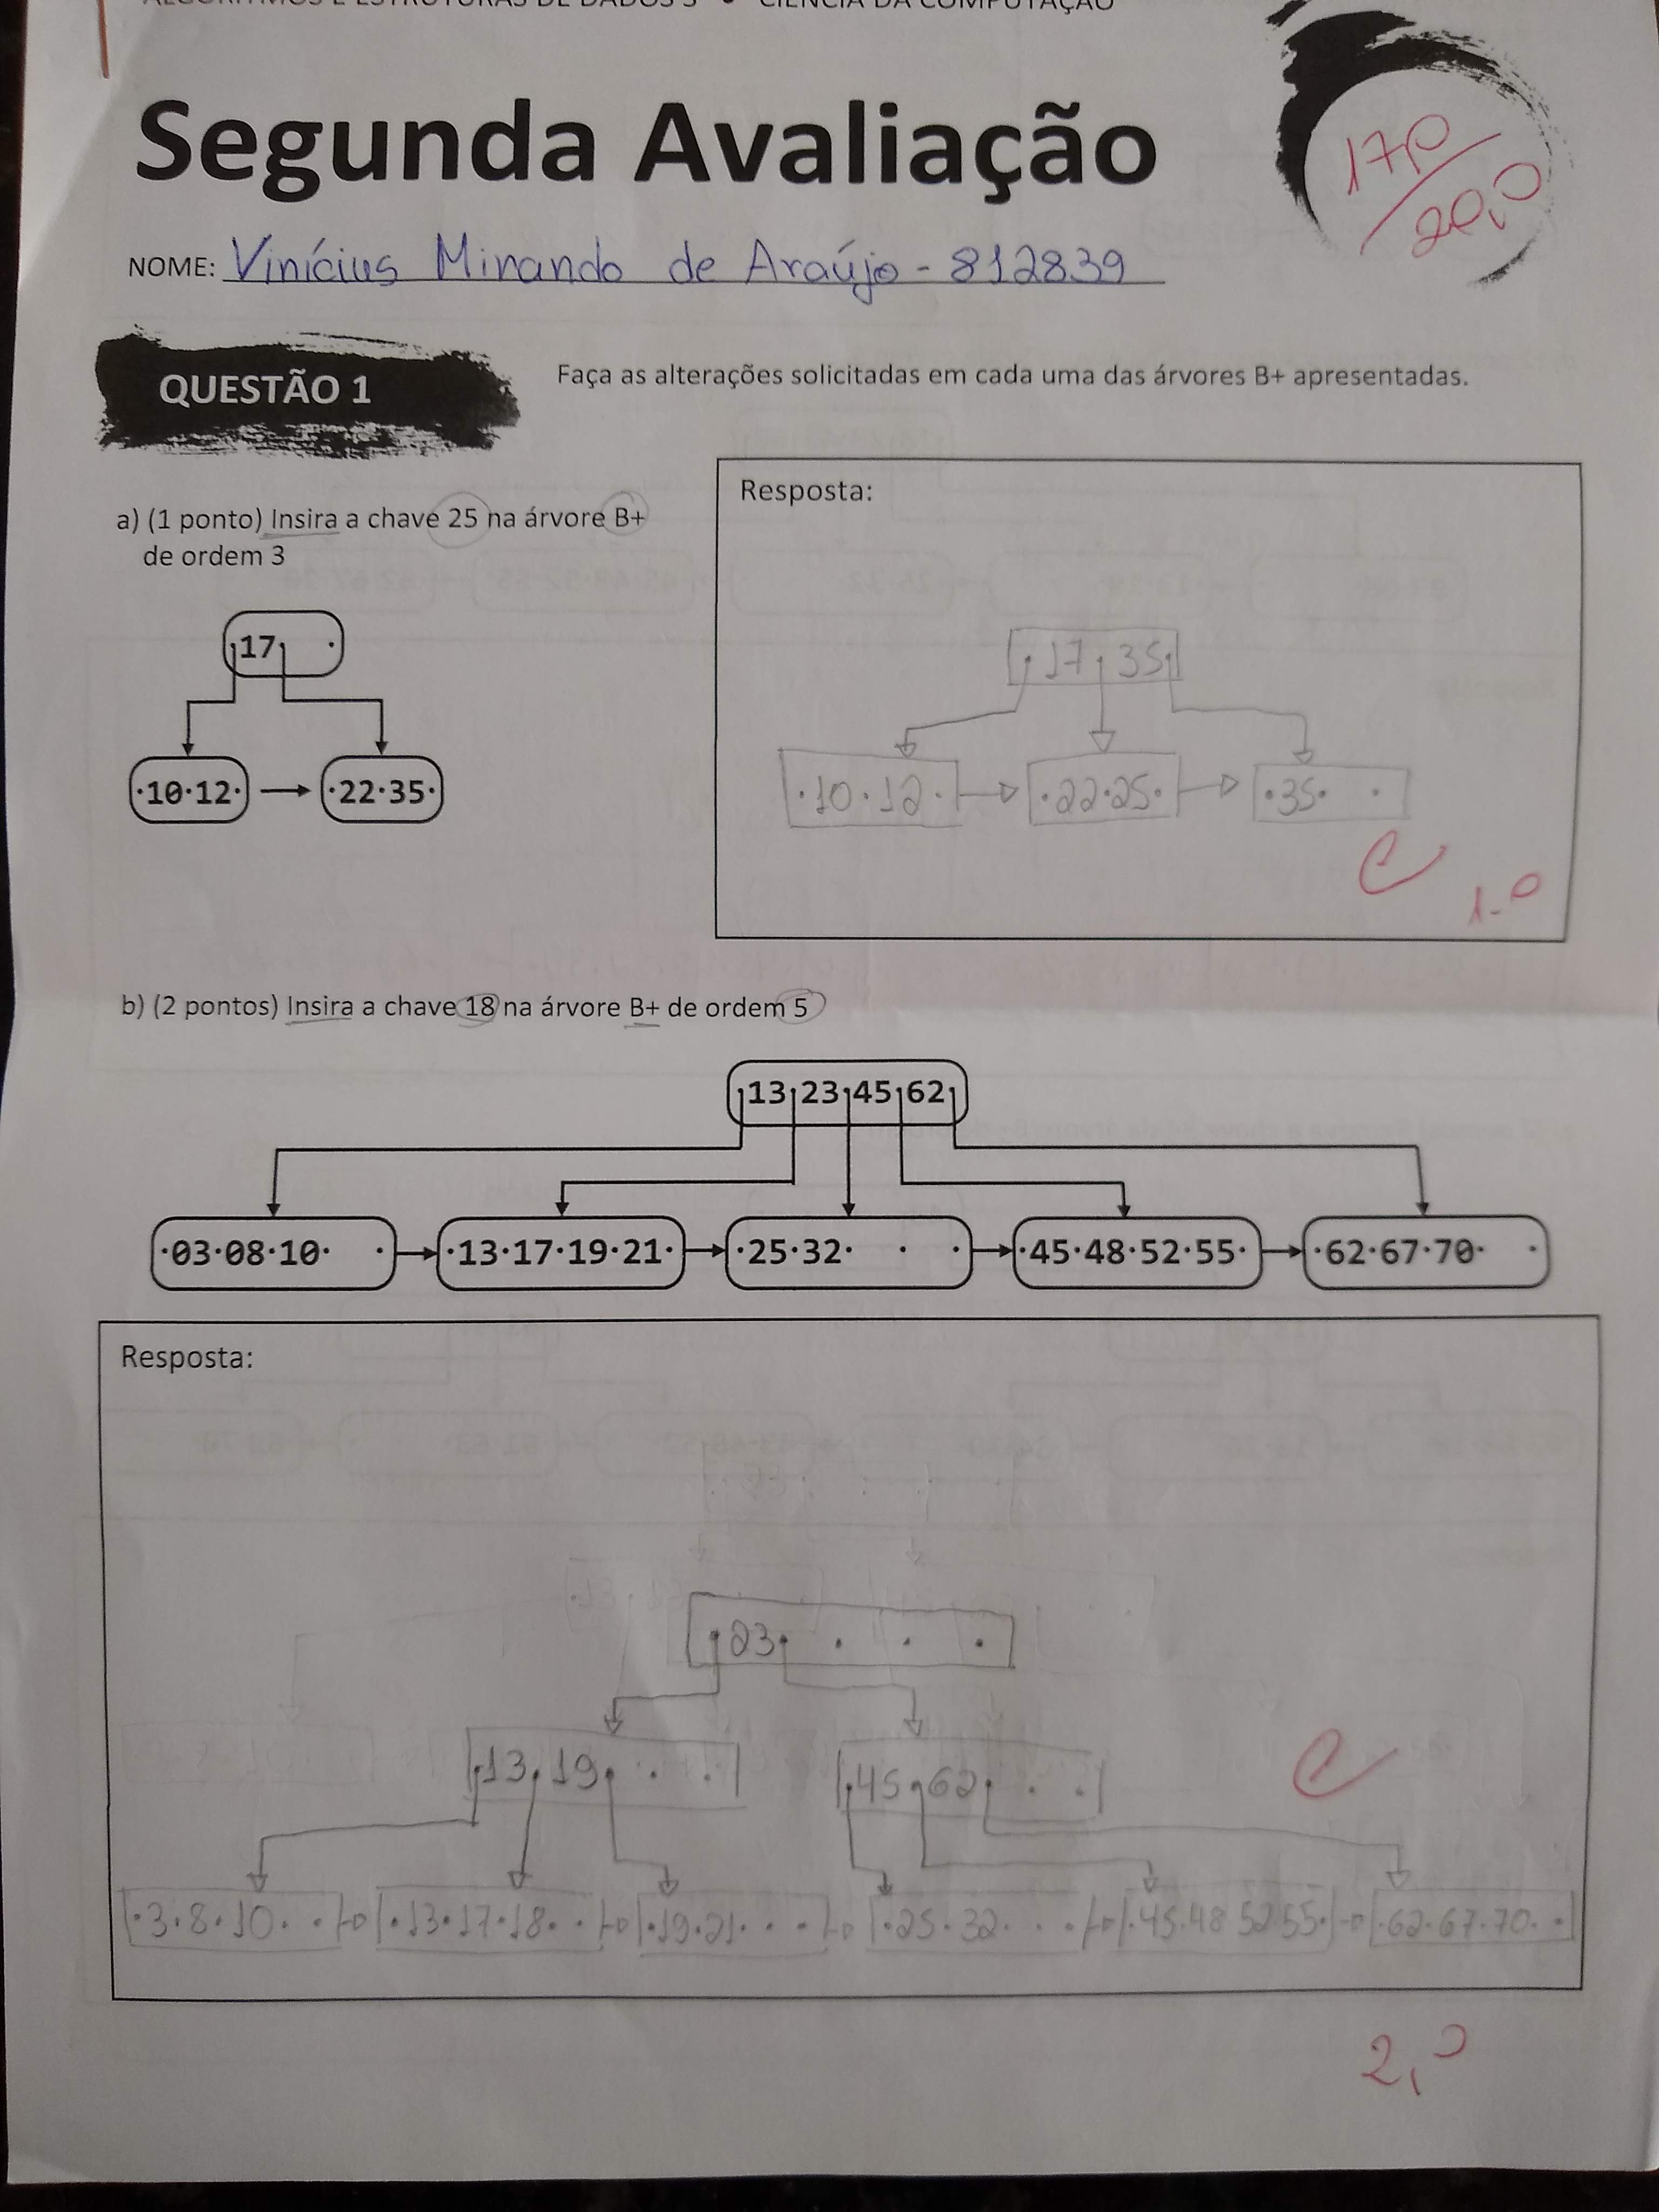 ALGORITMOS E ESTRUTURAS DE DADOS 3 • CIÊNCIA DA COMPUTAÇÃO
Segunda Avaliação
17,0
20,0
NOME: Vinícius Miranda de Araújo - 812839
QUESTÃO 1
Faça as alterações solicitadas em cada uma das árvores B+ apresentadas.
a) (1 ponto) Insira a chave 25 na árvore B+
de ordem 3
17
10·12 22·35
Resposta:
17 35
10·12 22·25 35
C
1,0
b) (2 pontos) Insira a chave 18 na árvore B+ de ordem 5
13 23 45 62
03·08·10 13·17·19·21 25·32 45·48·52·55 62·67·70
Resposta:
23
13 19 45 62
C
3·8·10 13·17·18 19·21 25·32 45·48 52·55 62·67·70
2,0